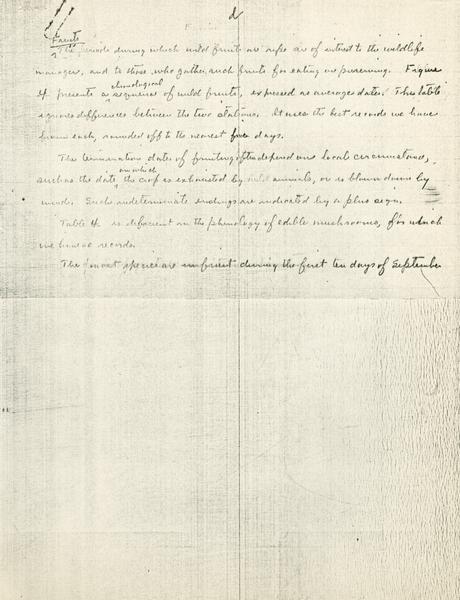 d
Fruits
The periods during which wild fruits are ripe is of interest to the wildlife
manager, and to those who gather such fruits for eating or preserving. Figure
4 presents a phenological sequence of wild fruits, expressed as average dates. This table
ignores differences between the two stations. It uses the best records we have
from each, rounded off to the nearest five days.
The termination dates of fruiting often depend on local circumstances,
such as the date on which the crop is exhausted by wild animals, or is blown down by
wind. Such indeterminate endings are indicated by a plus sign.
Table 4 is deficient in the phenology of edible mushrooms, for which
we have no records.
The most species are in fruit during the first ten days of September